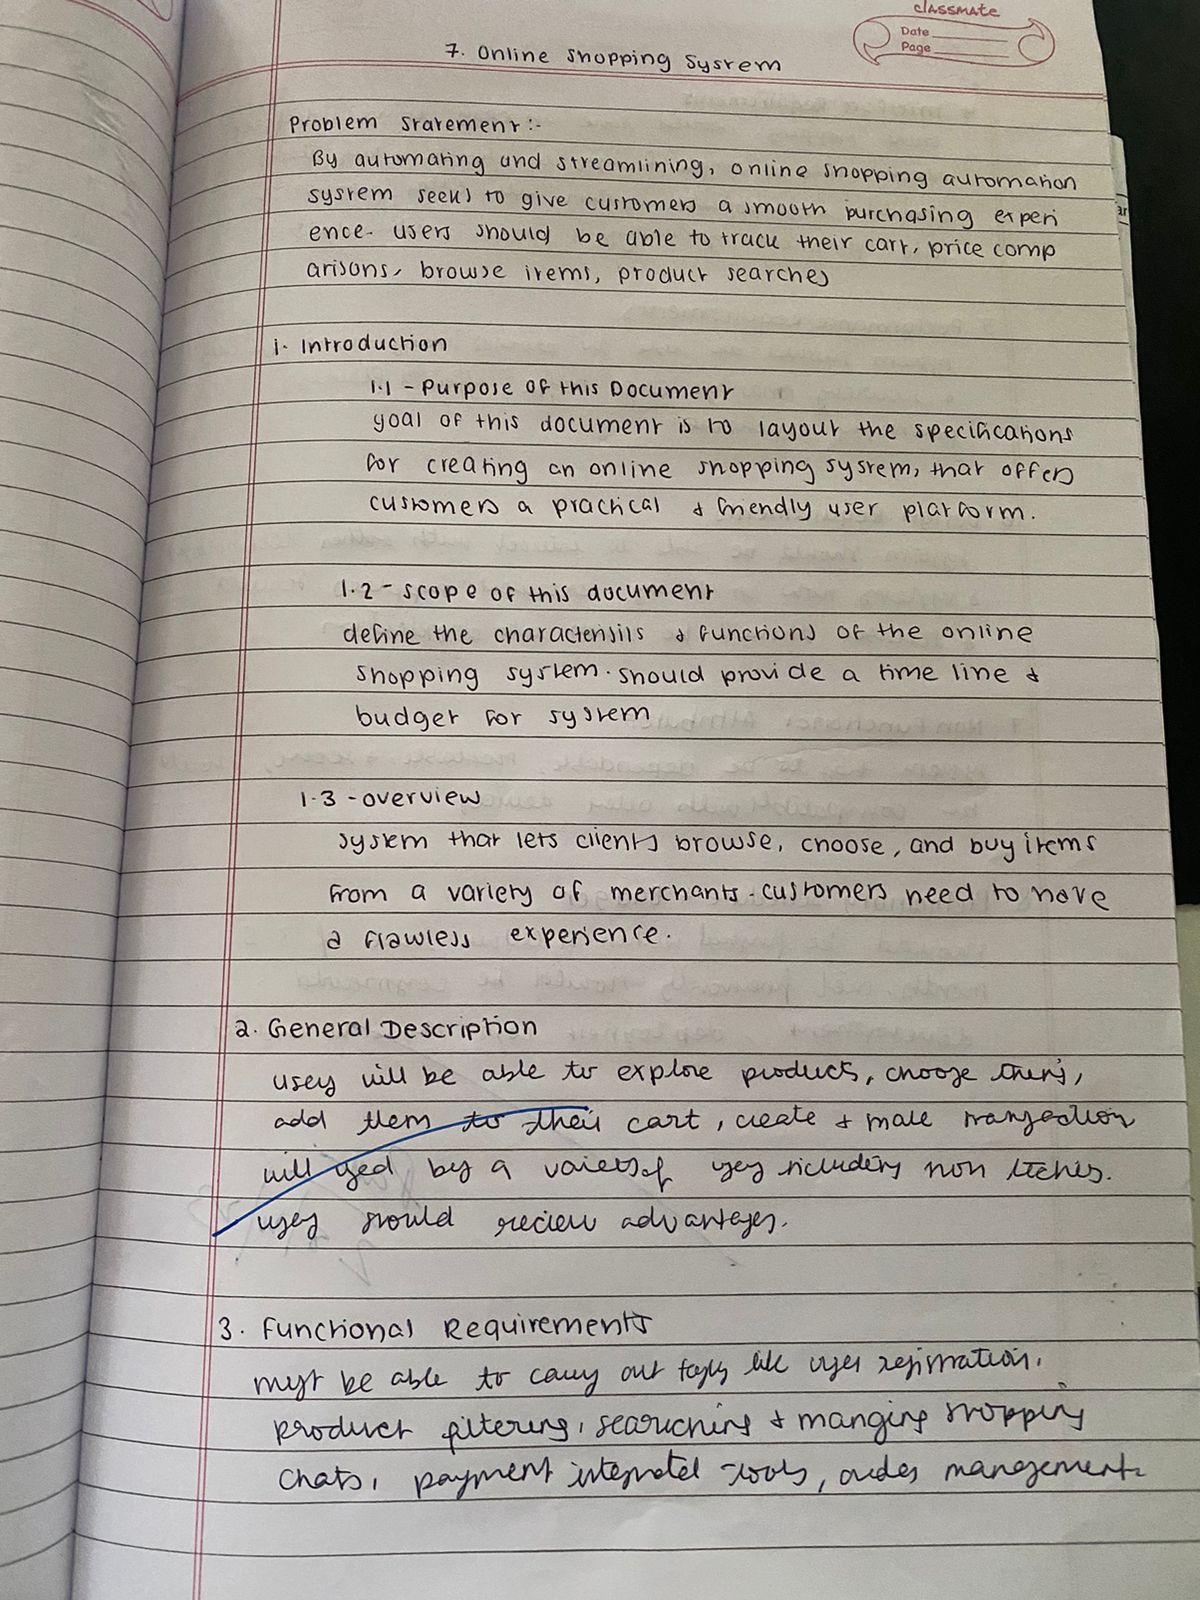 classmate
Date
Page
7. Online Shopping System
Problem Statement :-
By automating and streamlining, online shopping automation
system seeks to give customers a smooth purchasing experi
ence. users should be able to track their cart, price comp
arisons, browse items, product searches
1. Introduction
1.1 - Purpose of this Document
goal of this document is to layout the specifications
for creating an online shopping system, that offers
customers a practical & friendly user platform.
1.2 - scope of this document
define the & functions of the online
shopping system. should provide a time line &
budget for system
1.3 - overview
system that lets clients browse, choose, and buy items
from a variety of merchants. customers need to have
a flawless experience.
2. General Description
users will be able to explore products, choose them,
add them to their cart, create & make transaction
will used by a of users including non
users should advantages.
3. Functional Requirements
must be able to carry out tasks like user registration,
product filtering, searching & manging shopping
chats, payment tools, order management